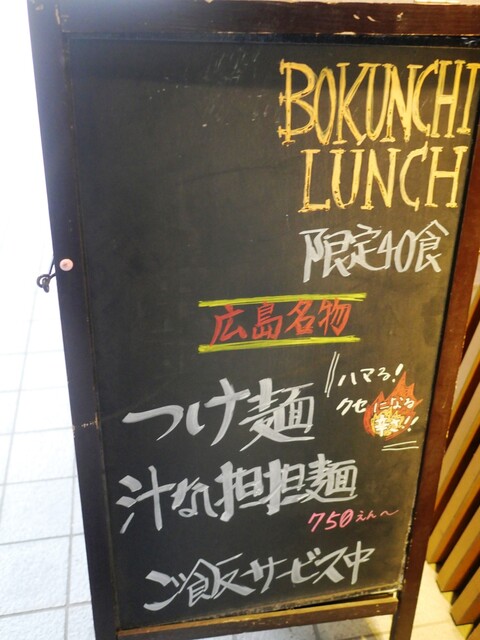 BOKUNCHI
LUNCH
限定40食
広島名物
ハマる!
クセになる
辛さ!!
つけ麺
汁なし担担麺
750えん〜
ご飯サービス中